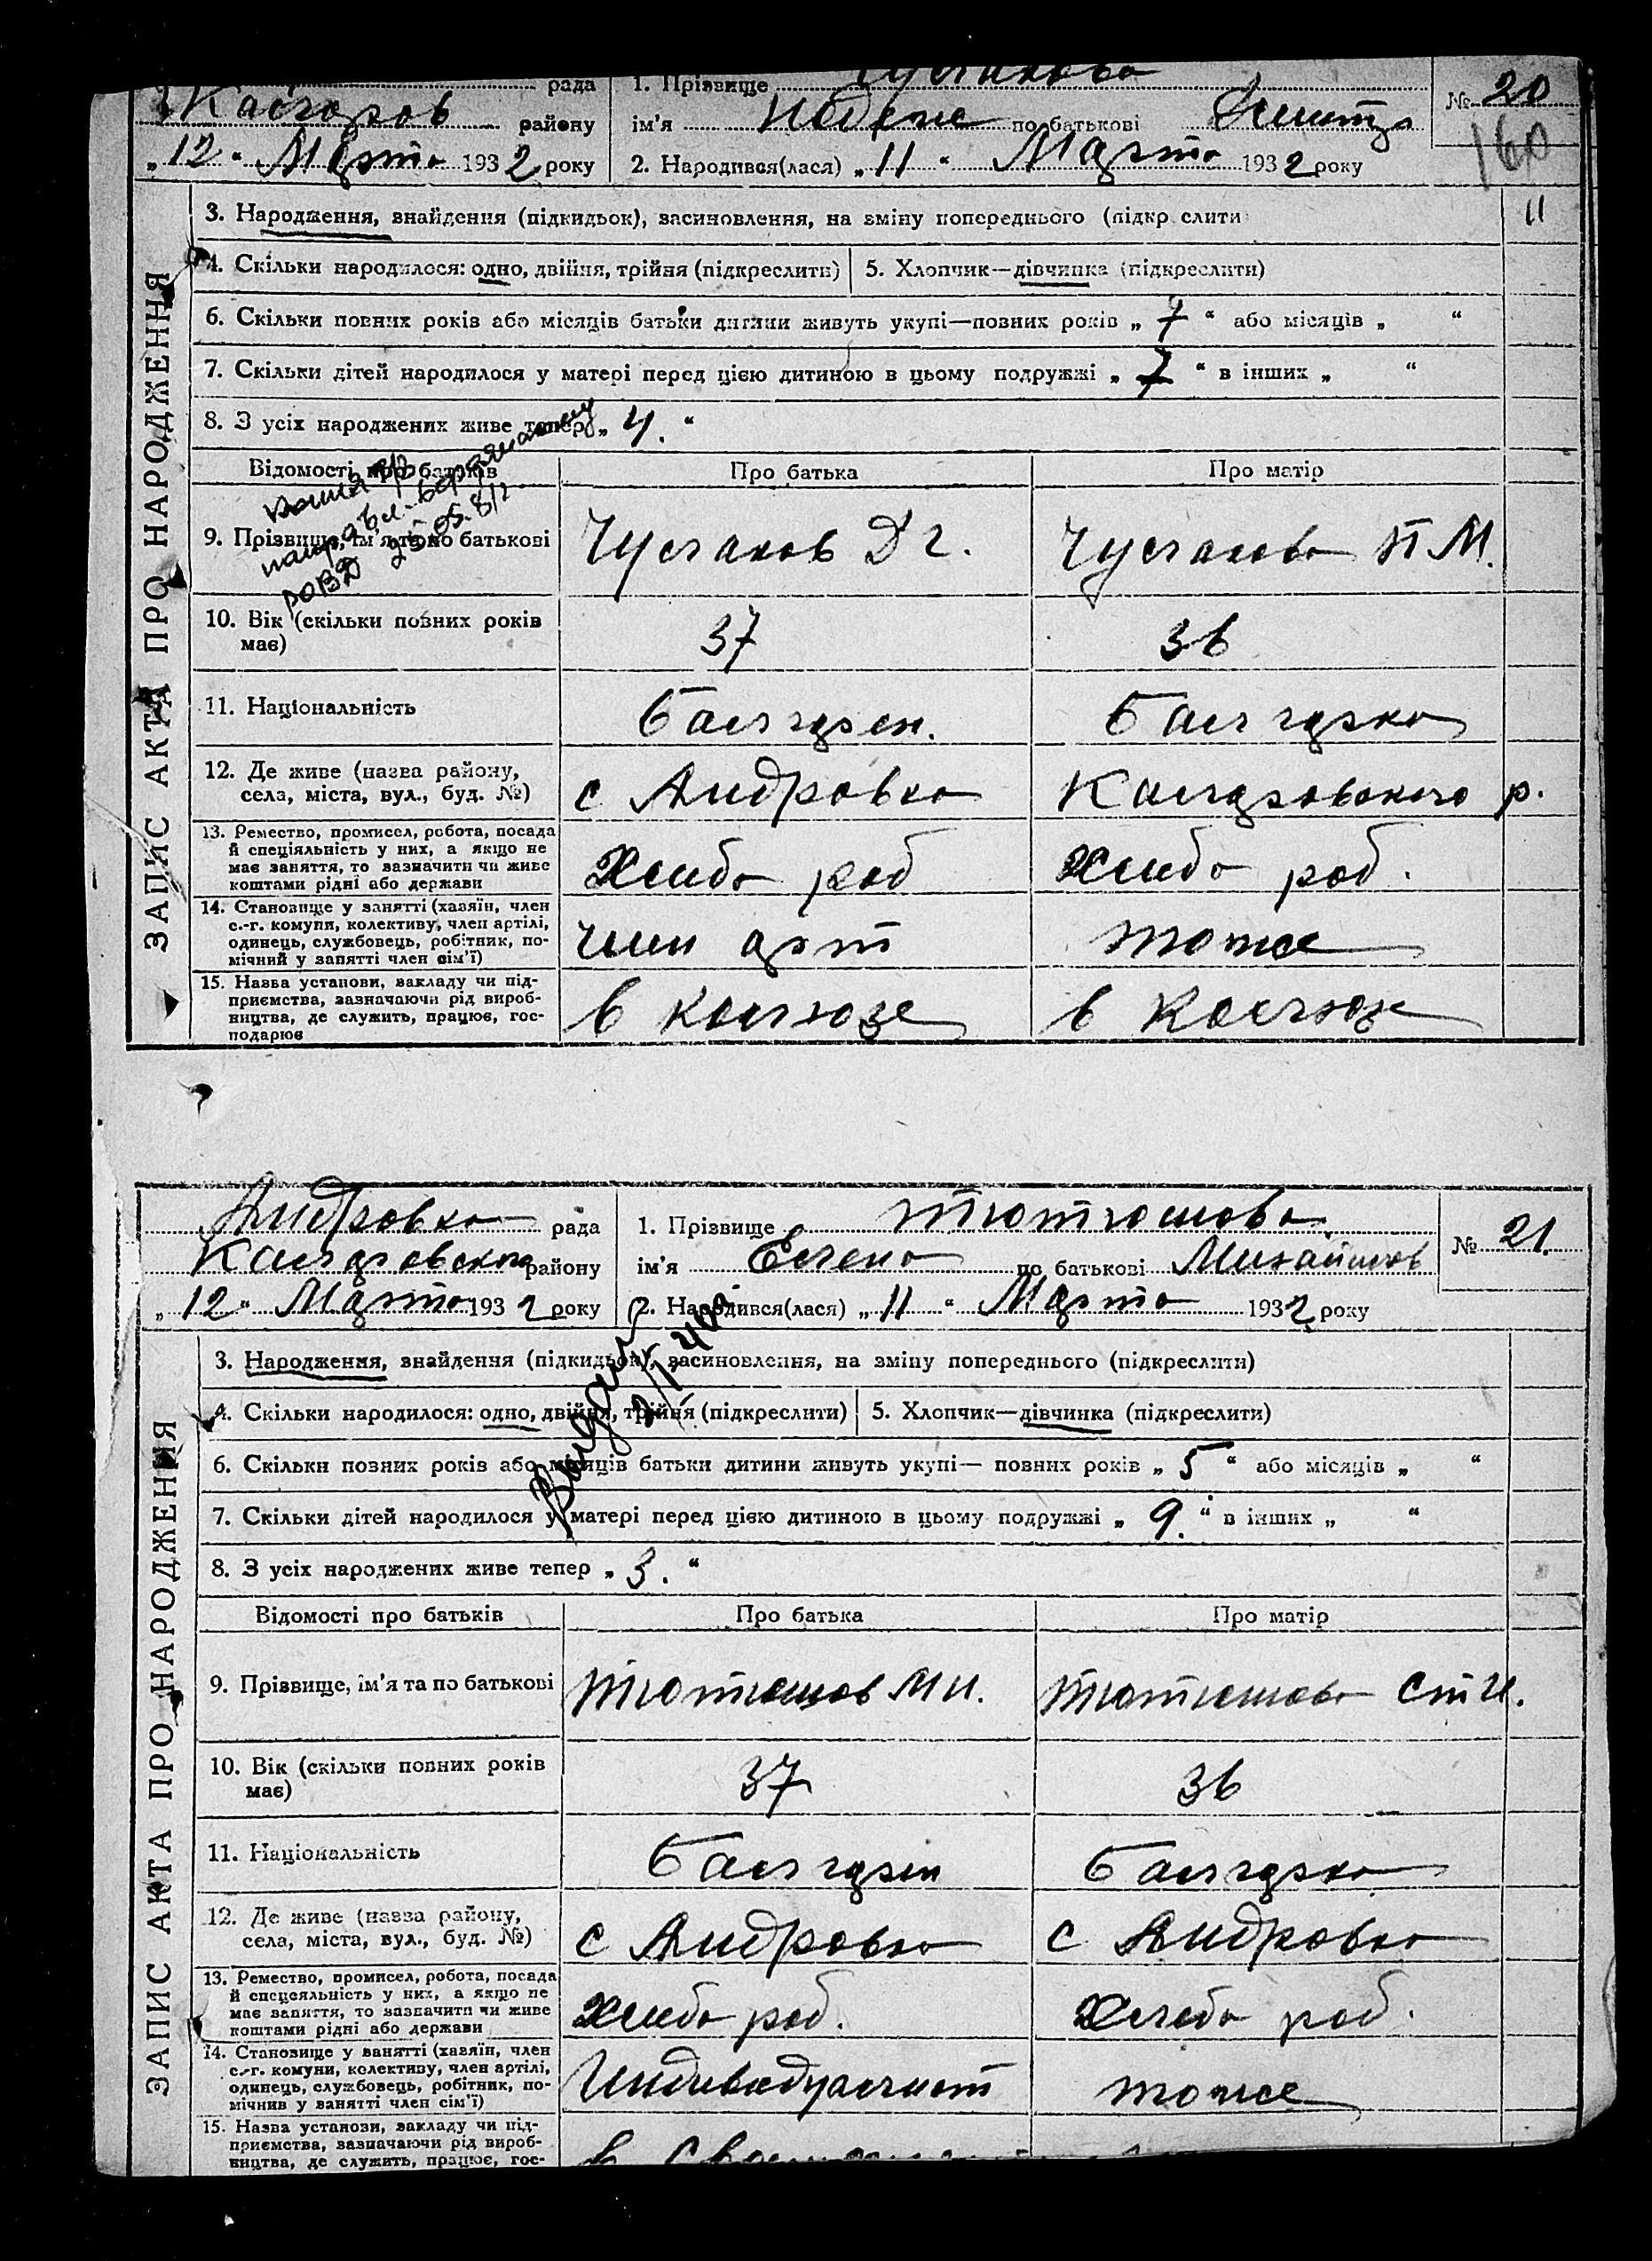 рада
1. Прізвище
№ 20
району
ім'я
по батькові
160
„ 12 “ Марта 1932 року
2. Народився(лася) „ 11 “ Марта 1932 року
ЗАПИС АКТА ПРО НАРОДЖЕННЯ
3. Народження, знайдення (підкидьок), засиновлення, на зміну попереднього (підкр слити
11
4. Скільки народилося: одно, двійня, трійня (підкреслити)
5. Хлопчик—дівчинка (підкреслити)
6. Скільки повних років або місяців батьки дитини живуть укупі—повних років „ 7 “ або місяців „ “
7. Скільки дітей народилося у матері перед цією дитиною в цьому подружжі „ 7 “ в інших „ “
8. З усіх народжених живе тепер „ 4. “
Відомості про батьків
Про батька
Про матір
9. Прізвище, ім'я та по батькові
Чуслаков Д Г.
Чуслакова П М.
10. Вік (скільки повних років
має)
37
36
11. Національність
Балгарен.
Балгарка
12. Де живе (назва району,
села, міста, вул., буд. №)
с Андровка
Каларовского р.
13. Ремество, промисел, робота, посада
й спеціяльність у них, а якщо не
має заняття, то зазначити чи живе
коштами рідні або держави
Хлибо роб
Хлибо роб.
14. Становище у занятті (хазяїн, член
с.-г. комуни, колективу, член артілі,
одинець, службовець, робітник, по-
мічний у занятті член сім'ї)
член арт
тоже
15. Назва установи, закладу чи під-
приємства, зазначаючи рід вироб-
ництва, де служить, працює, гос-
подарює
в колхозе
в колхозе
Андровка рада
1. Прізвище Тютюшова
№ 21.
району
ім'я Елена по батькові Михайлов
„ 12 “ Марта 1932 року
2. Народився(лася) „ 11 “ Марта 1932 року
ЗАПИС АКТА ПРО НАРОДЖЕННЯ
3. Народження, знайдення (підкидьок), засиновлення, на зміну попереднього (підкреслити)
4. Скільки народилося: одно, двійня, трійня (підкреслити)
5. Хлопчик—дівчинка (підкреслити)
6. Скільки повних років або місяців батьки дитини живуть укупі— повних років „ 5 “ або місяців „ “
7. Скільки дітей народилося у матері перед цією дитиною в цьому подружжі „ 9. “ в інших „ “
8. З усіх народжених живе тепер „ 3. “
Відомості про батьків
Про батька
Про матір
9. Прізвище, ім'я та по батькові
Тютюшов М И.
Тютюшова Ст И.
10. Вік (скільки повних років
має)
37
36
11. Національність
Балгарин
Балгарка
12. Де живе (назва району,
села, міста, вул., буд. №)
с Андровка
с Андровка
13. Ремество, промисел, робота, посада
й спецеяльність у них, а якщо не
має заняття, то зазначити чи живе
коштами рідні або держави
Хлибо роб.
Хлебо роб.
14. Становище у занятті (хазяїн, член
с.-г. комуни, колективу, член артілі,
одинець, службовець, робітник, по-
мічнив у занятті член сім'ї)
Индивидуалист
тоже
15. Назва установи, закладу чи під-
приємства, зазначаючи рід вироб-
ництва, де служить, працює, гос-